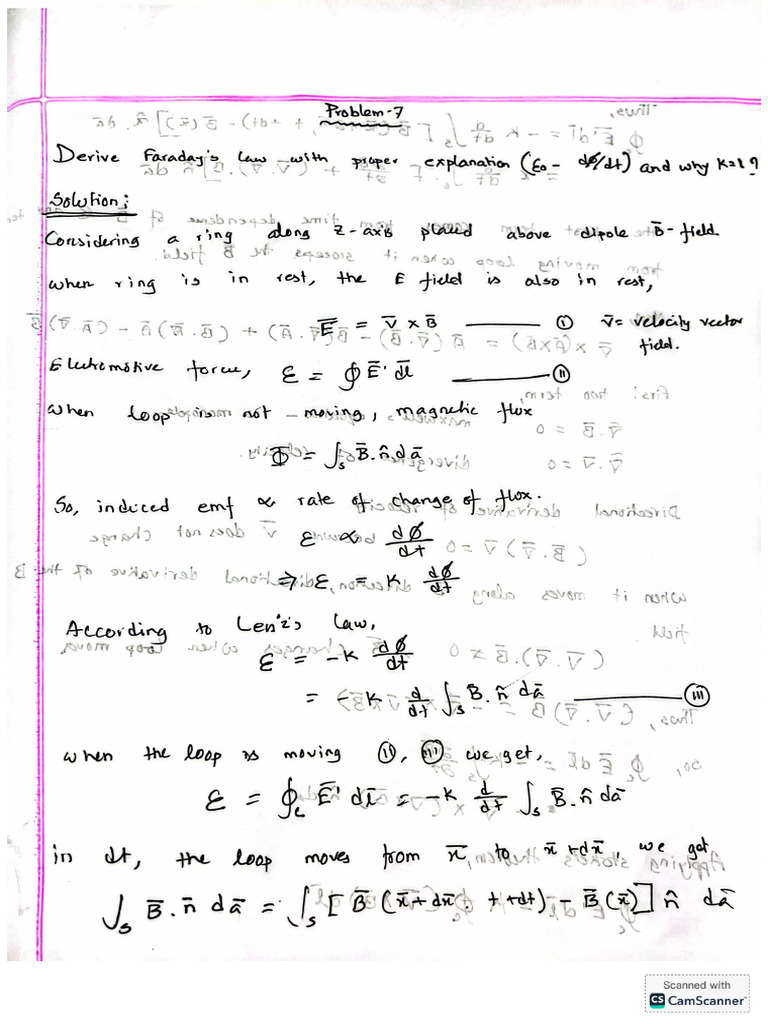 Problem-7
Derive Faraday's law with proper explanation (ε₀ = dø/dt) and why k=1?
Solution:
Considering a ring along z-axis placed above dipole B̄-field.
when ring is in rest, the E field is also in rest,
Ē = v̄ × B̄ ——— (i) v̄ = velocity vector field.
Electromotive force, ε = ∮ Ē' dl̄ ——— (ii)
when loop is not moving, magnetic flux
Φ̄ = ∫ₛ B̄. n̂ dā
So, induced emf ∝ rate of change of flux.
ε ∝ dø/dt
⇒ ε = k dø/dt
According to Lenz's law,
ε = -k dø/dt
= -k d/dt ∫ₛ B̄. n̂ dā ——— (iii)
when the loop is moving (ii), (iii) we get,
ε = ∮c Ē' dl̄ = -k d/dt ∫ₛ B̄. n̂ dā
in dt, the loop moves from x̄ to x̄ + dx̄, we get
∫ₛ B̄. n̄ dā = ∫ₛ [ B̄ (x̄ + dx̄, t + dt) - B̄ (x̄) ] n̂ dā
Scanned with
CS CamScanner